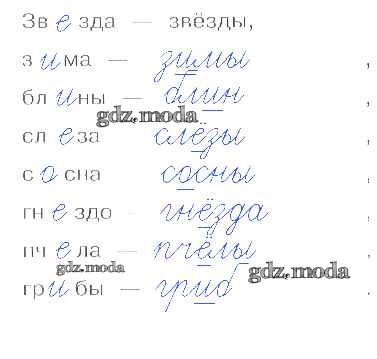 Зв е зда — звёзды,
з и ма — зимы ,
бл и ны — блин ,
gdz.moda
сл е за слёзы ,
с о сна сосны ,
гн е здо - гнёзда ,
пч е ла — пчёлы ,
gdz.moda
gdz.moda
гр и бы — гриб .